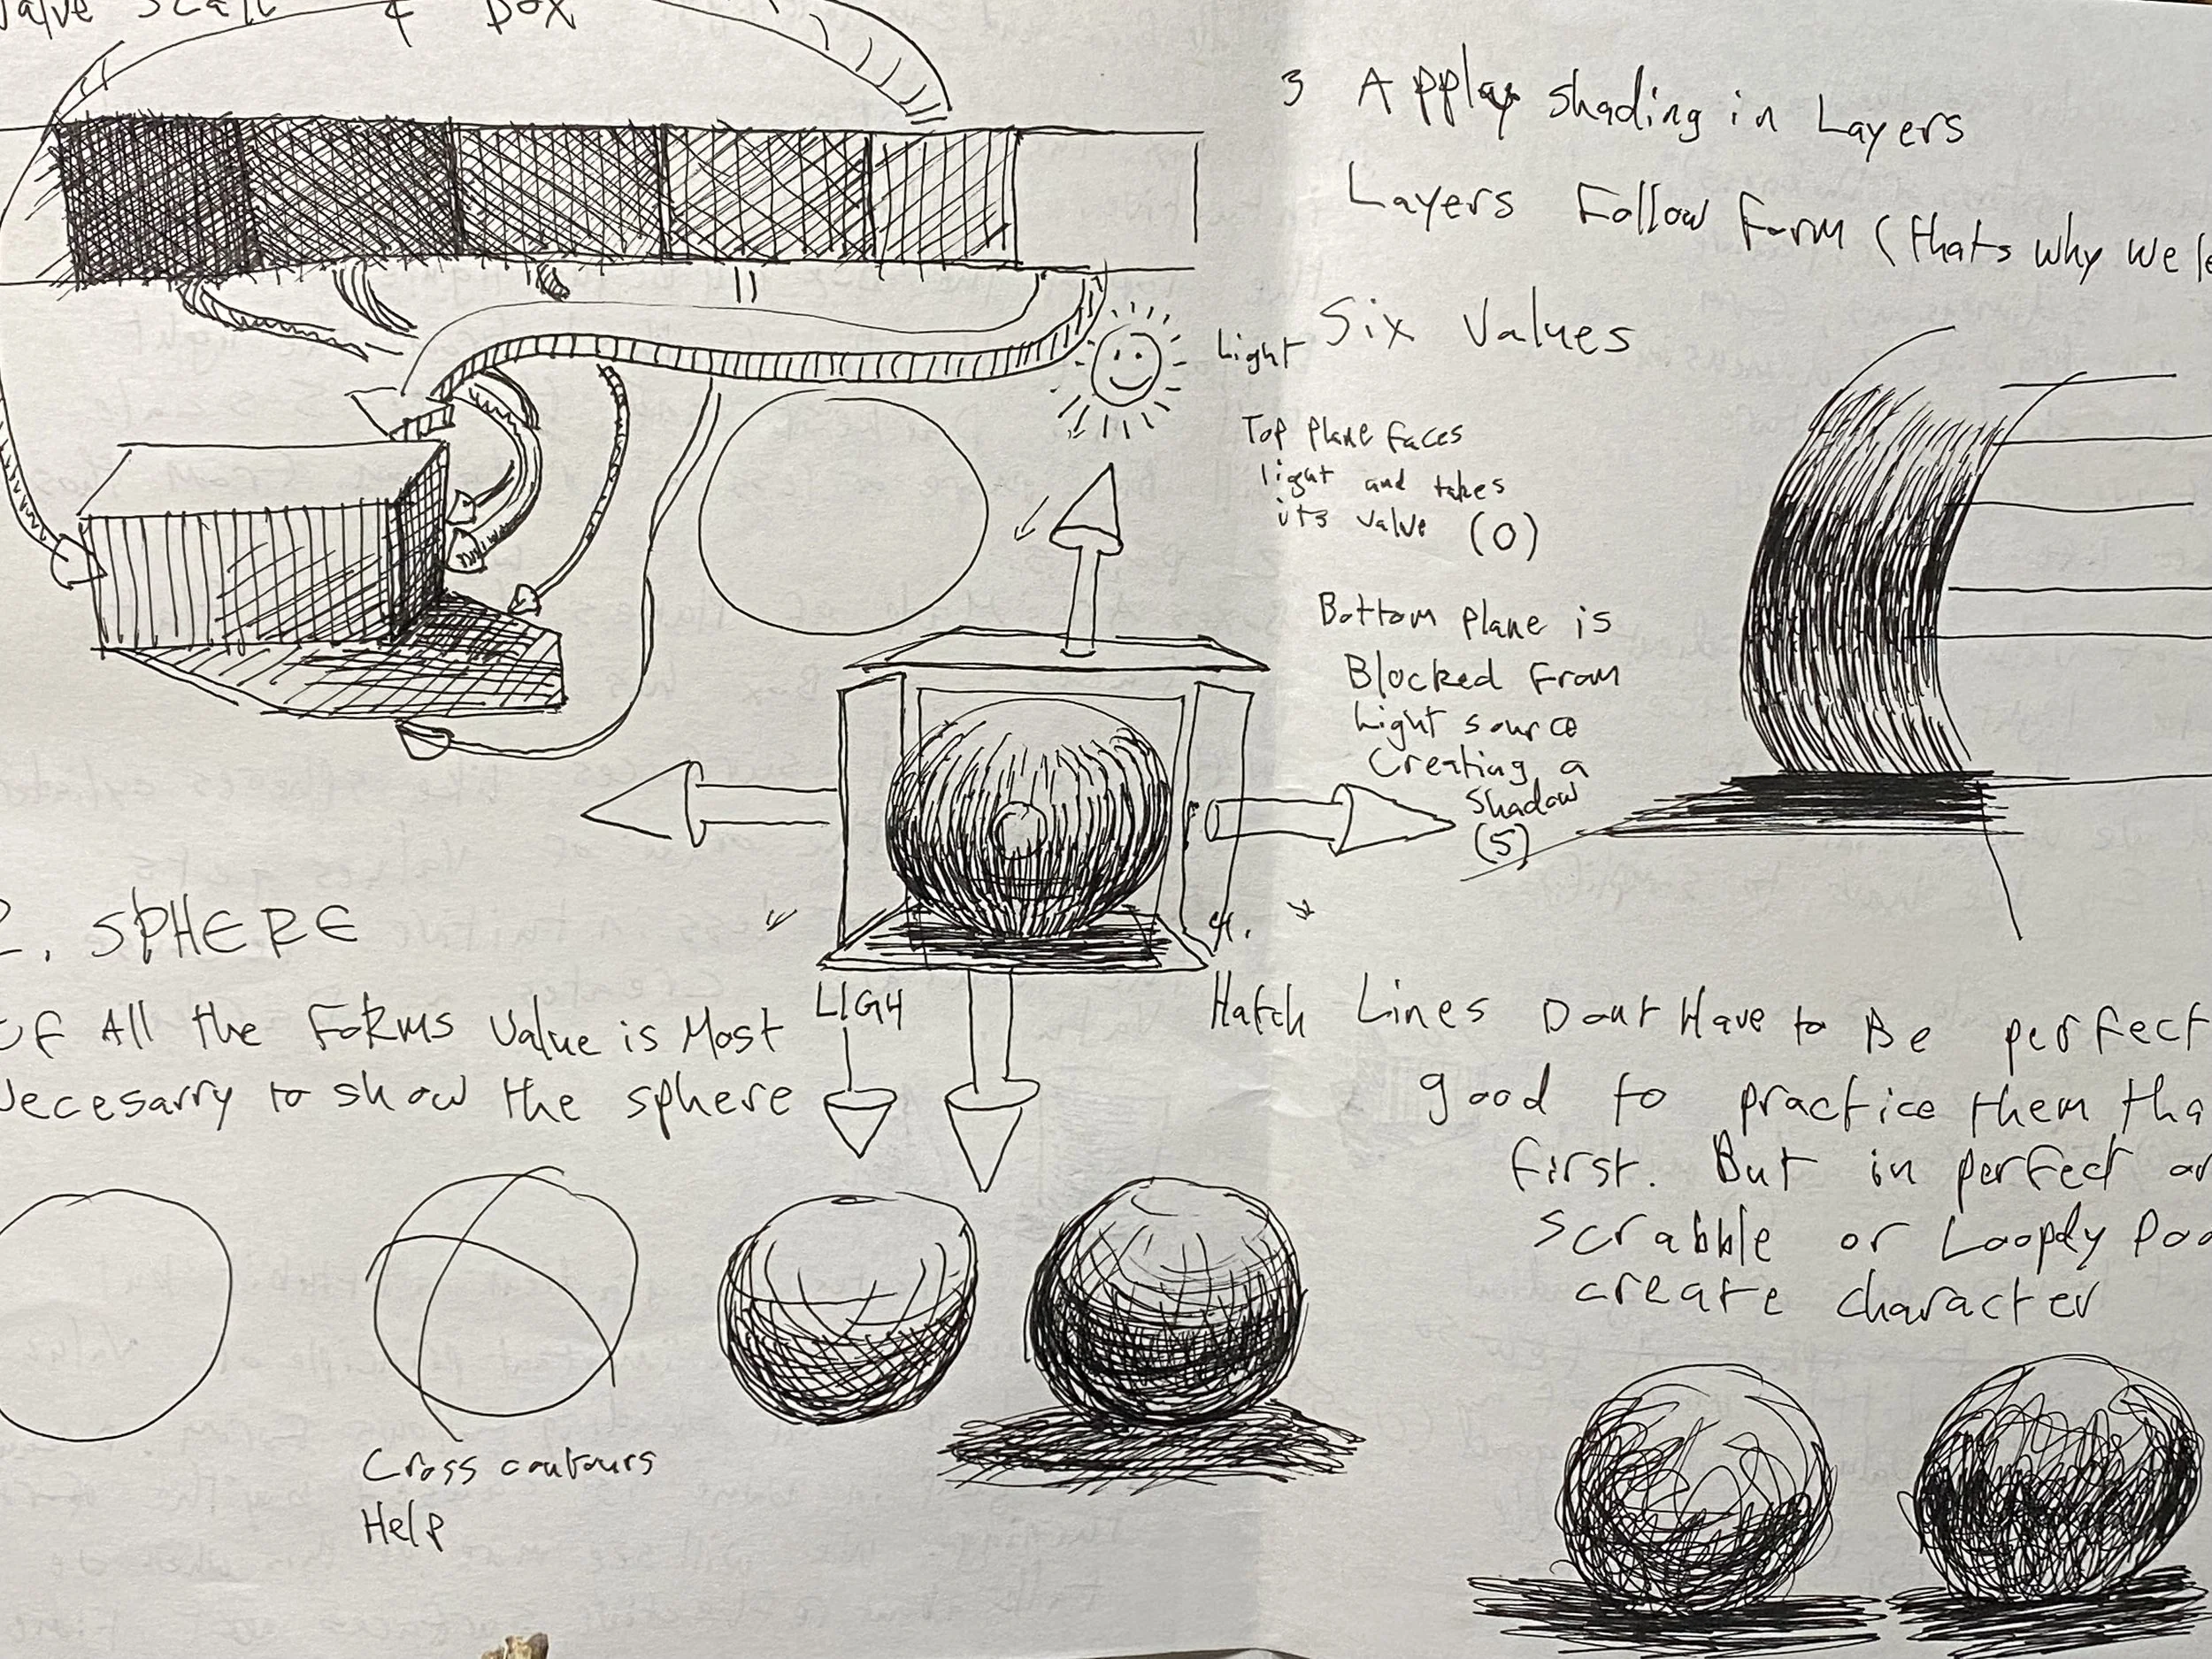 Value Scale & Box
Light
2. SPHERE
Of All the Forms Value is Most
Necesarry to show the sphere
LIGH
Cross contours
Help
3 Applay shading in Layers
Layers Follow Form (thats why we le
Six Values
Top Plane faces
light and takes
its value (0)
Bottom Plane is
Blocked From
Light source
Creating a
Shadow
(5)
4.
Hatch Lines Dont Have to Be perfect
good to practice them tha
first. But in perfect
scrabble or Loopdy Doo
create character